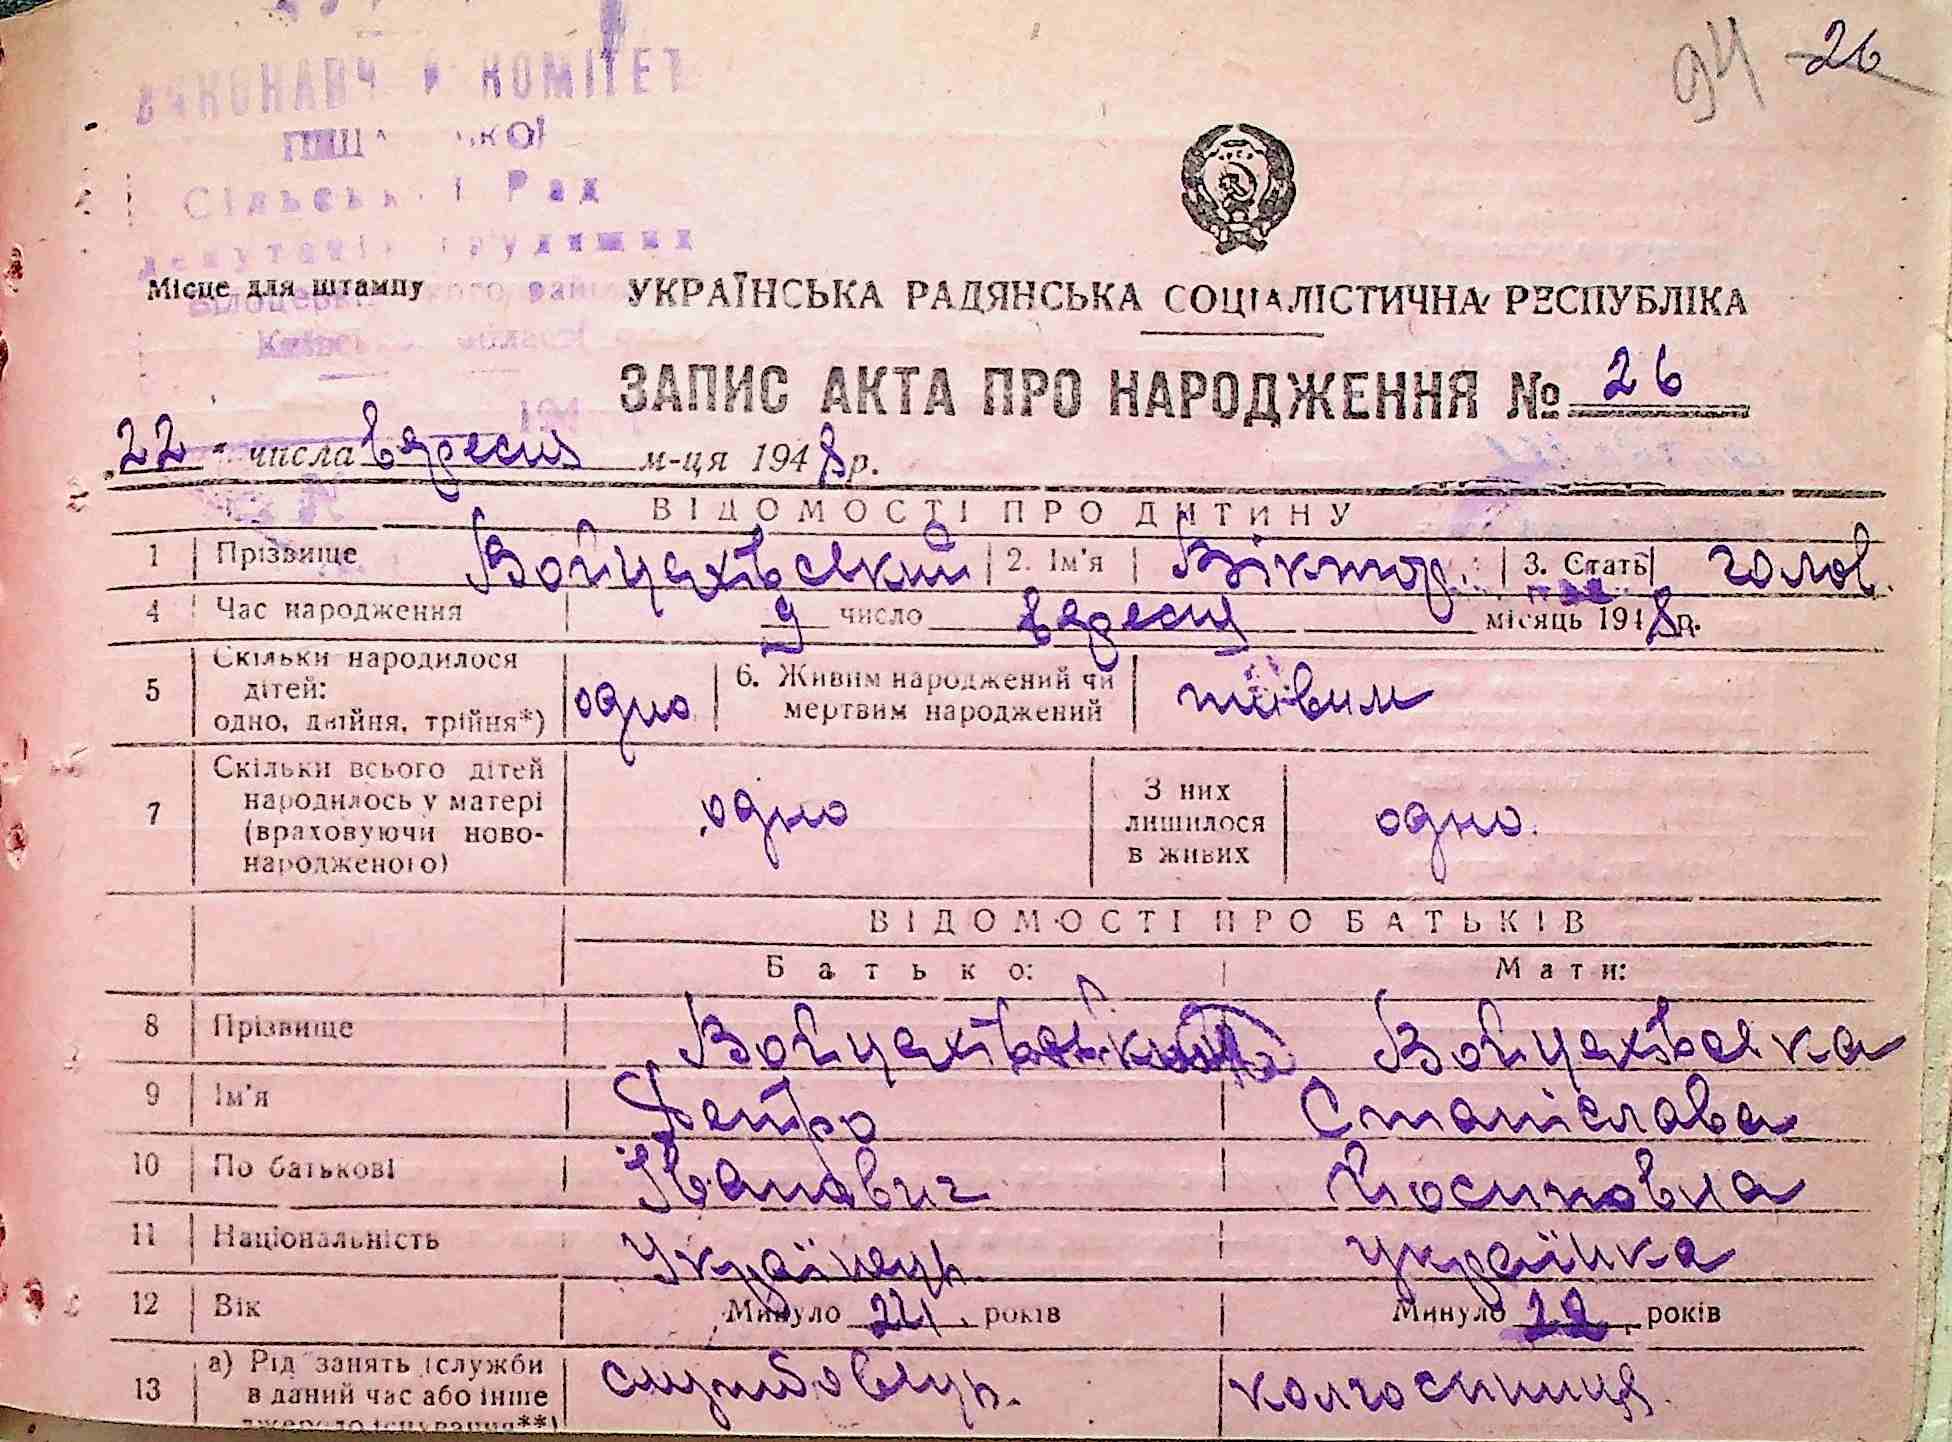 94 26
ВИКОНАВЧИЙ КОМІТЕТ
Сільської Рад
депутатів трудящих
Білоцерківського райо
Київської області
194
Місце для штампу
УКРАЇНСЬКА РАДЯНСЬКА СОЦІАЛІСТИЧНА РЕСПУБЛІКА
ЗАПИС АКТА ПРО НАРОДЖЕННЯ № 26
22 числа вересня м-ця 1948 р.
ВІДОМОСТІ ПРО ДИТИНУ
1 Прізвище Войцехівський 2. Ім'я Віктор. 3. Стать чолов.
4 Час народження 9 число вересня місяць 1948 р.
5 Скільки народилося дітей: одно, двійня, трійня*) одно 6. Живим народжений чи мертвим народжений живим
7 Скільки всього дітей народилось у матері (враховуючи ново-народженого) одно З них лишилося в живих одно.
ВІДОМОСТІ ПРО БАТЬКІВ
Батько: Мати:
8 Прізвище Войцехівський Войцехівська
9 Ім'я Петро Станіслава
10 По батькові Іванович Йосиповна
11 Національність Українець. українка
12 Вік Минуло 24 років Минуло 22 років
13 а) Рід занять (служби в даний час або інше джерело існування**) службовець. колгоспниця.